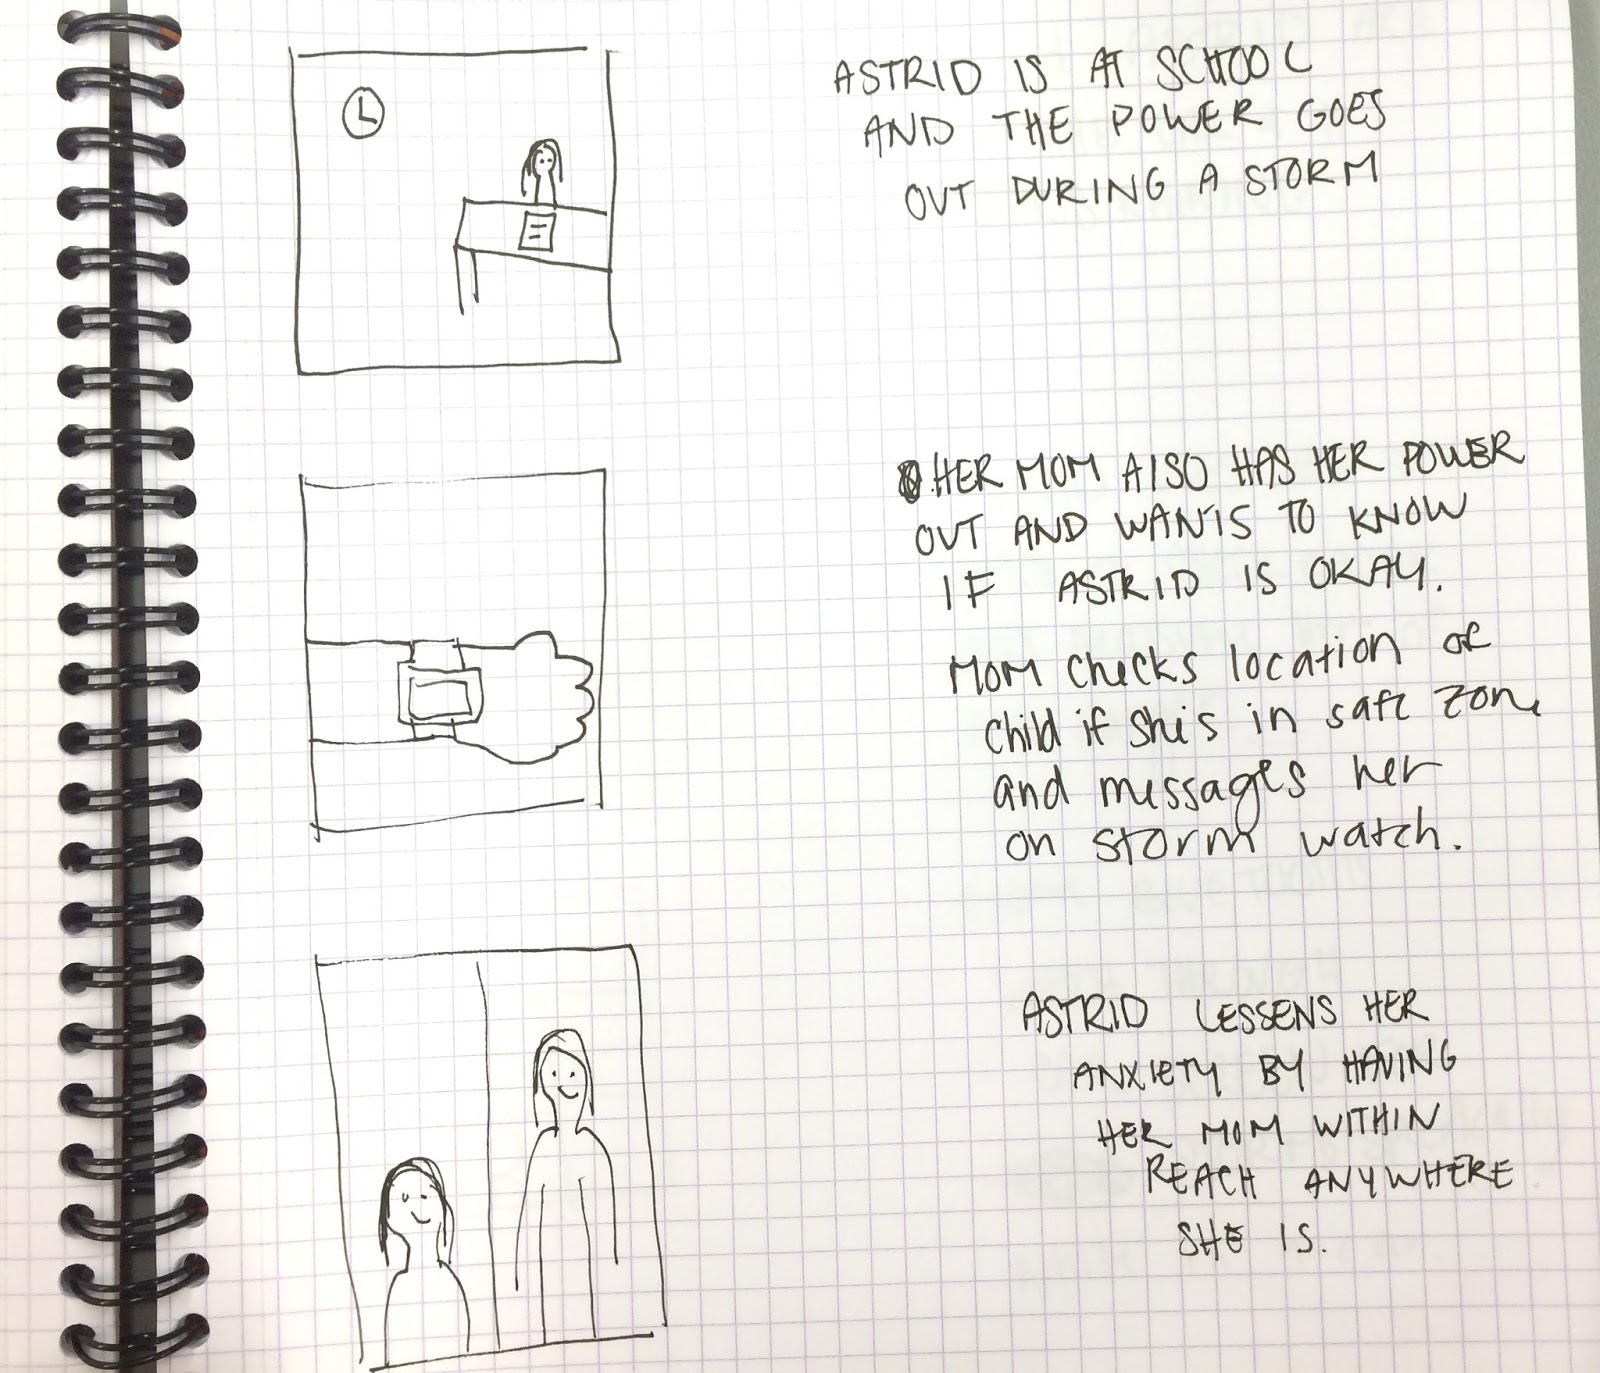 ASTRID IS AT SCHOOL
AND THE POWER GOES
OUT DURING A STORM
HER MOM ALSO HAS HER POWER
OUT AND WANTS TO KNOW
IF ASTRID IS OKAY.
MOM checks location of
child if she's in safe zone
and messages her
on storm watch.
ASTRID LESSENS HER
ANXIETY BY HAVING
HER MOM WITHIN
REACH ANYWHERE
SHE IS.